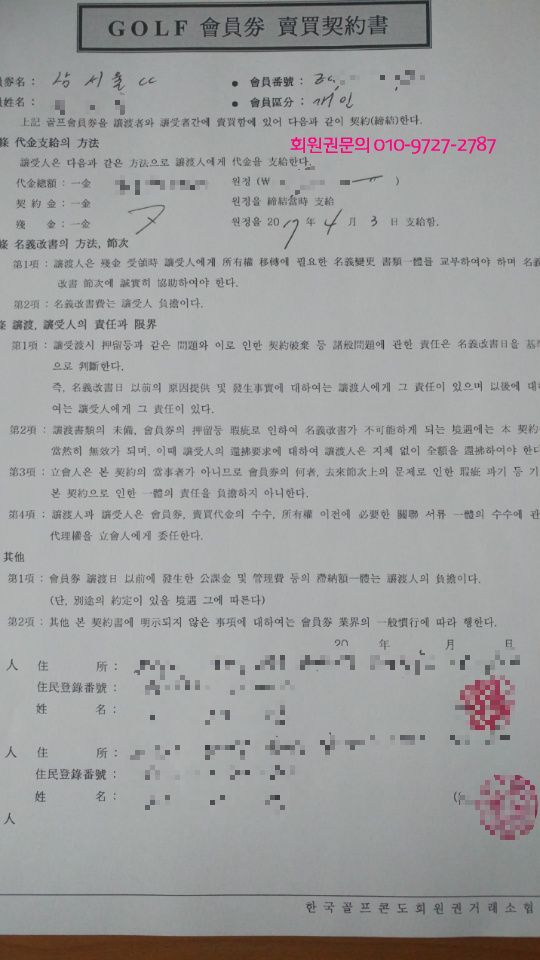 GOLF 會員券 賣買契約書
員券名 : 남서울cc ● 會員番號 :
員姓名 : ● 會員區分 : 개인
上記 골프會員券을 讓渡者와 讓受者간에 賣買함에 있어 다음과 같이 契約(締結)한다.
條 代金支給의 方法
회원권문의 010-9727-2787
讓受人은 다음과 같은 方法으로 讓渡人에게 代金을 支給한다.
代金總額 : 一金 원정 (₩ )
契約金 : 一金 원정을 締結當時 支給
殘 金 : 一金 원정을 2017年 4月 3日 支給함.
條 名義改書의 方法, 節次
第1項 : 讓渡人은 殘金 受領時 讓受人에게 所有權 移轉에 必要한 名義變更 書類一體를 교부하여야 하며 名義
改書 節次에 誠實히 協助하여야 한다.
第2項 : 名義改書費는 讓受人 負擔이다.
條 讓渡, 讓受人의 責任과 限界
第1項 : 讓受渡시 押留등과 같은 問題와 이로 인한 契約破棄 등 諸般問題에 관한 責任은 名義改書日을 基準
으로 判斷한다.
즉, 名義改書日 以前의 原因提供 및 發生事實에 대하여는 讓渡人에게 그 責任이 있으며 以後에 대하
여는 讓受人에게 그 責任이 있다.
第2項 : 讓渡書類의 未備, 會員券의 押留등 瑕疵로 인하여 名義改書가 不可能하게 되는 境遇에는 本 契約
當然히 無效가 되며, 이때 讓受人의 還拂要求에 대하여 讓渡人은 지체 없이 全額을 還拂하여야 한다
第3項 : 立會人은 본 契約의 當事者가 아니므로 會員券의 何者, 去來節次上의 문제로 인한 瑕疵 파기 등 기
본 契約으로 인한 一體의 責任을 負擔하지 아니한다.
第4項 : 讓渡人과 讓受人은 會員券, 賣買代金의 수수, 所有權 이전에 必要한 關聯 서류 一體의 수수에 관
代理權을 立會人에게 委任한다.
其他
第1項 : 會員券 讓渡日 以前에 發生한 公課金 및 管理費 등의 滯納額一體는 讓渡人의 負擔이다.
(단, 別途의 約定이 있을 境遇 그에 따른다)
第2項 : 其他 본 契約書에 明示되지 않은 事項에 대하여는 會員券 業界의 一般慣行에 따라 행한다.
20 年 月 日
人 住 所 :
住民登錄番號 :
姓 名 :
人 住 所 :
住民登錄番號 :
姓 名 : (
人
한국골프콘도회원권거래소협